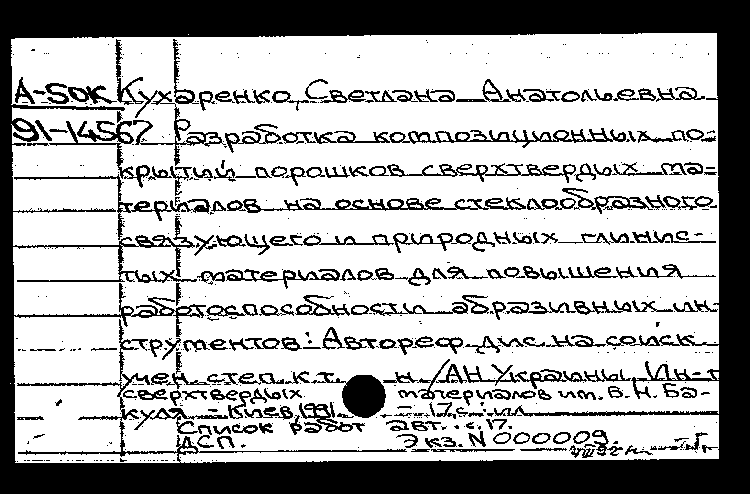 А-50К Кухаренко, Светлана Анатольевна.
91-14567 Разработка композиционных по-
крытий порошков сверхтвердых ма-
териалов на основе стеклообразного
связующего и природных глинис-
тых материалов для повышения
работоспособности абразивных ин-
струментов: Автореф. дис. на соиск.
учен. степ. к.т.н. /АН Украины. Ин-т
сверхтвердых материалов им. В.Н. Ба-
куля. - Киев, 1991. - 17 с.: ил.
Список работ авт.: с. 17.
ДСП. Экз. N 000009.